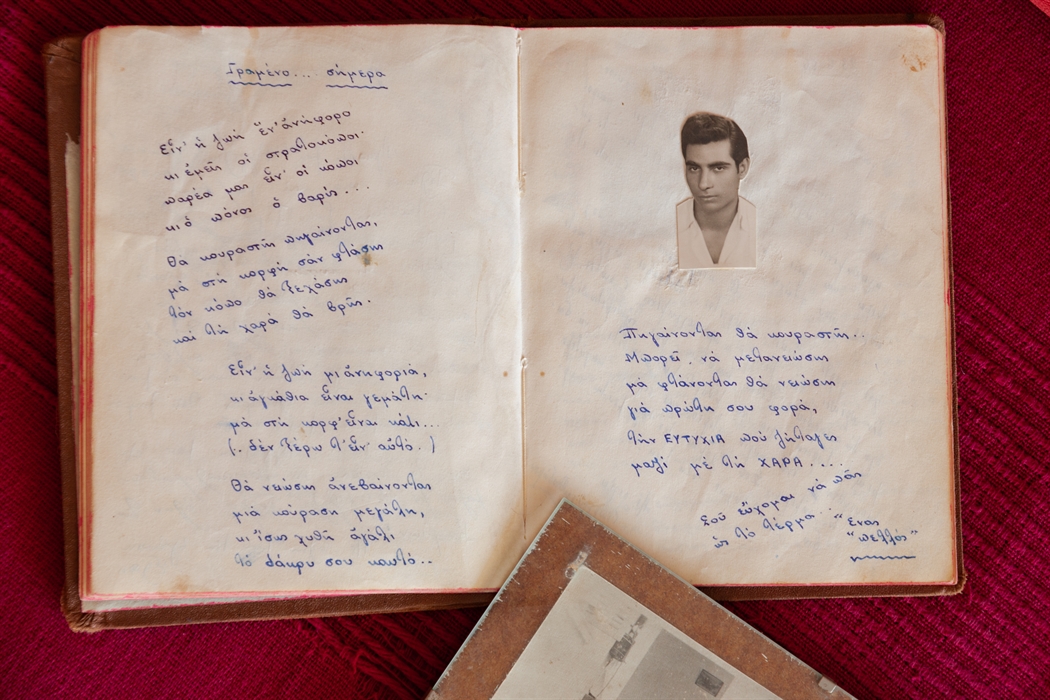 Γραμένο... σήμερα
Εἶν' ἡ ζωὴ ἕν' ἀνήφορο
κι ἐμεῖς οἱ στρατοκόποι·
παρέα μας εἶν' οἱ κόποι
κι ὁ πόνος ὁ βαρύς...
Θὰ κουραστῆς πηγαίνοντας,
μὰ στὴ κορφὴ σὰν φτάσης
τὸν κόπο θὰ ξεχάσης
καὶ τὴ χαρὰ θὰ βρῆς.
Εἶν' ἡ ζωὴ μι' ἀνηφοριά,
κι ἀγκάθια εἶναι γεμάτη·
μὰ στὴ κορφ' εἶναι κάτι...
(. δὲν ξέρω τ' εἶν' αὐτό. )
Θὰ νειώσης ἀνεβαίνοντας
μιὰ κούραση μεγάλη,
κι ἴσως χυθῆ ἀγάλι
τὸ δάκρυ σου καυτό..
Πηγαίνοντας θὰ κουραστῆς..
Μπορεῖ νὰ μετανειώσης
μὰ φτάνοντας θὰ νειώσης
γιὰ πρώτη σου φορά,
τὴν ΕΥΤΥΧΙΑ ποὺ ζήταγες
μαζὶ μὲ τὴ ΧΑΡΑ....
Σοῦ εὔχομαι νὰ πᾶς
ὡς τὸ τέρμα...
"Ἕνας
"πελλός"